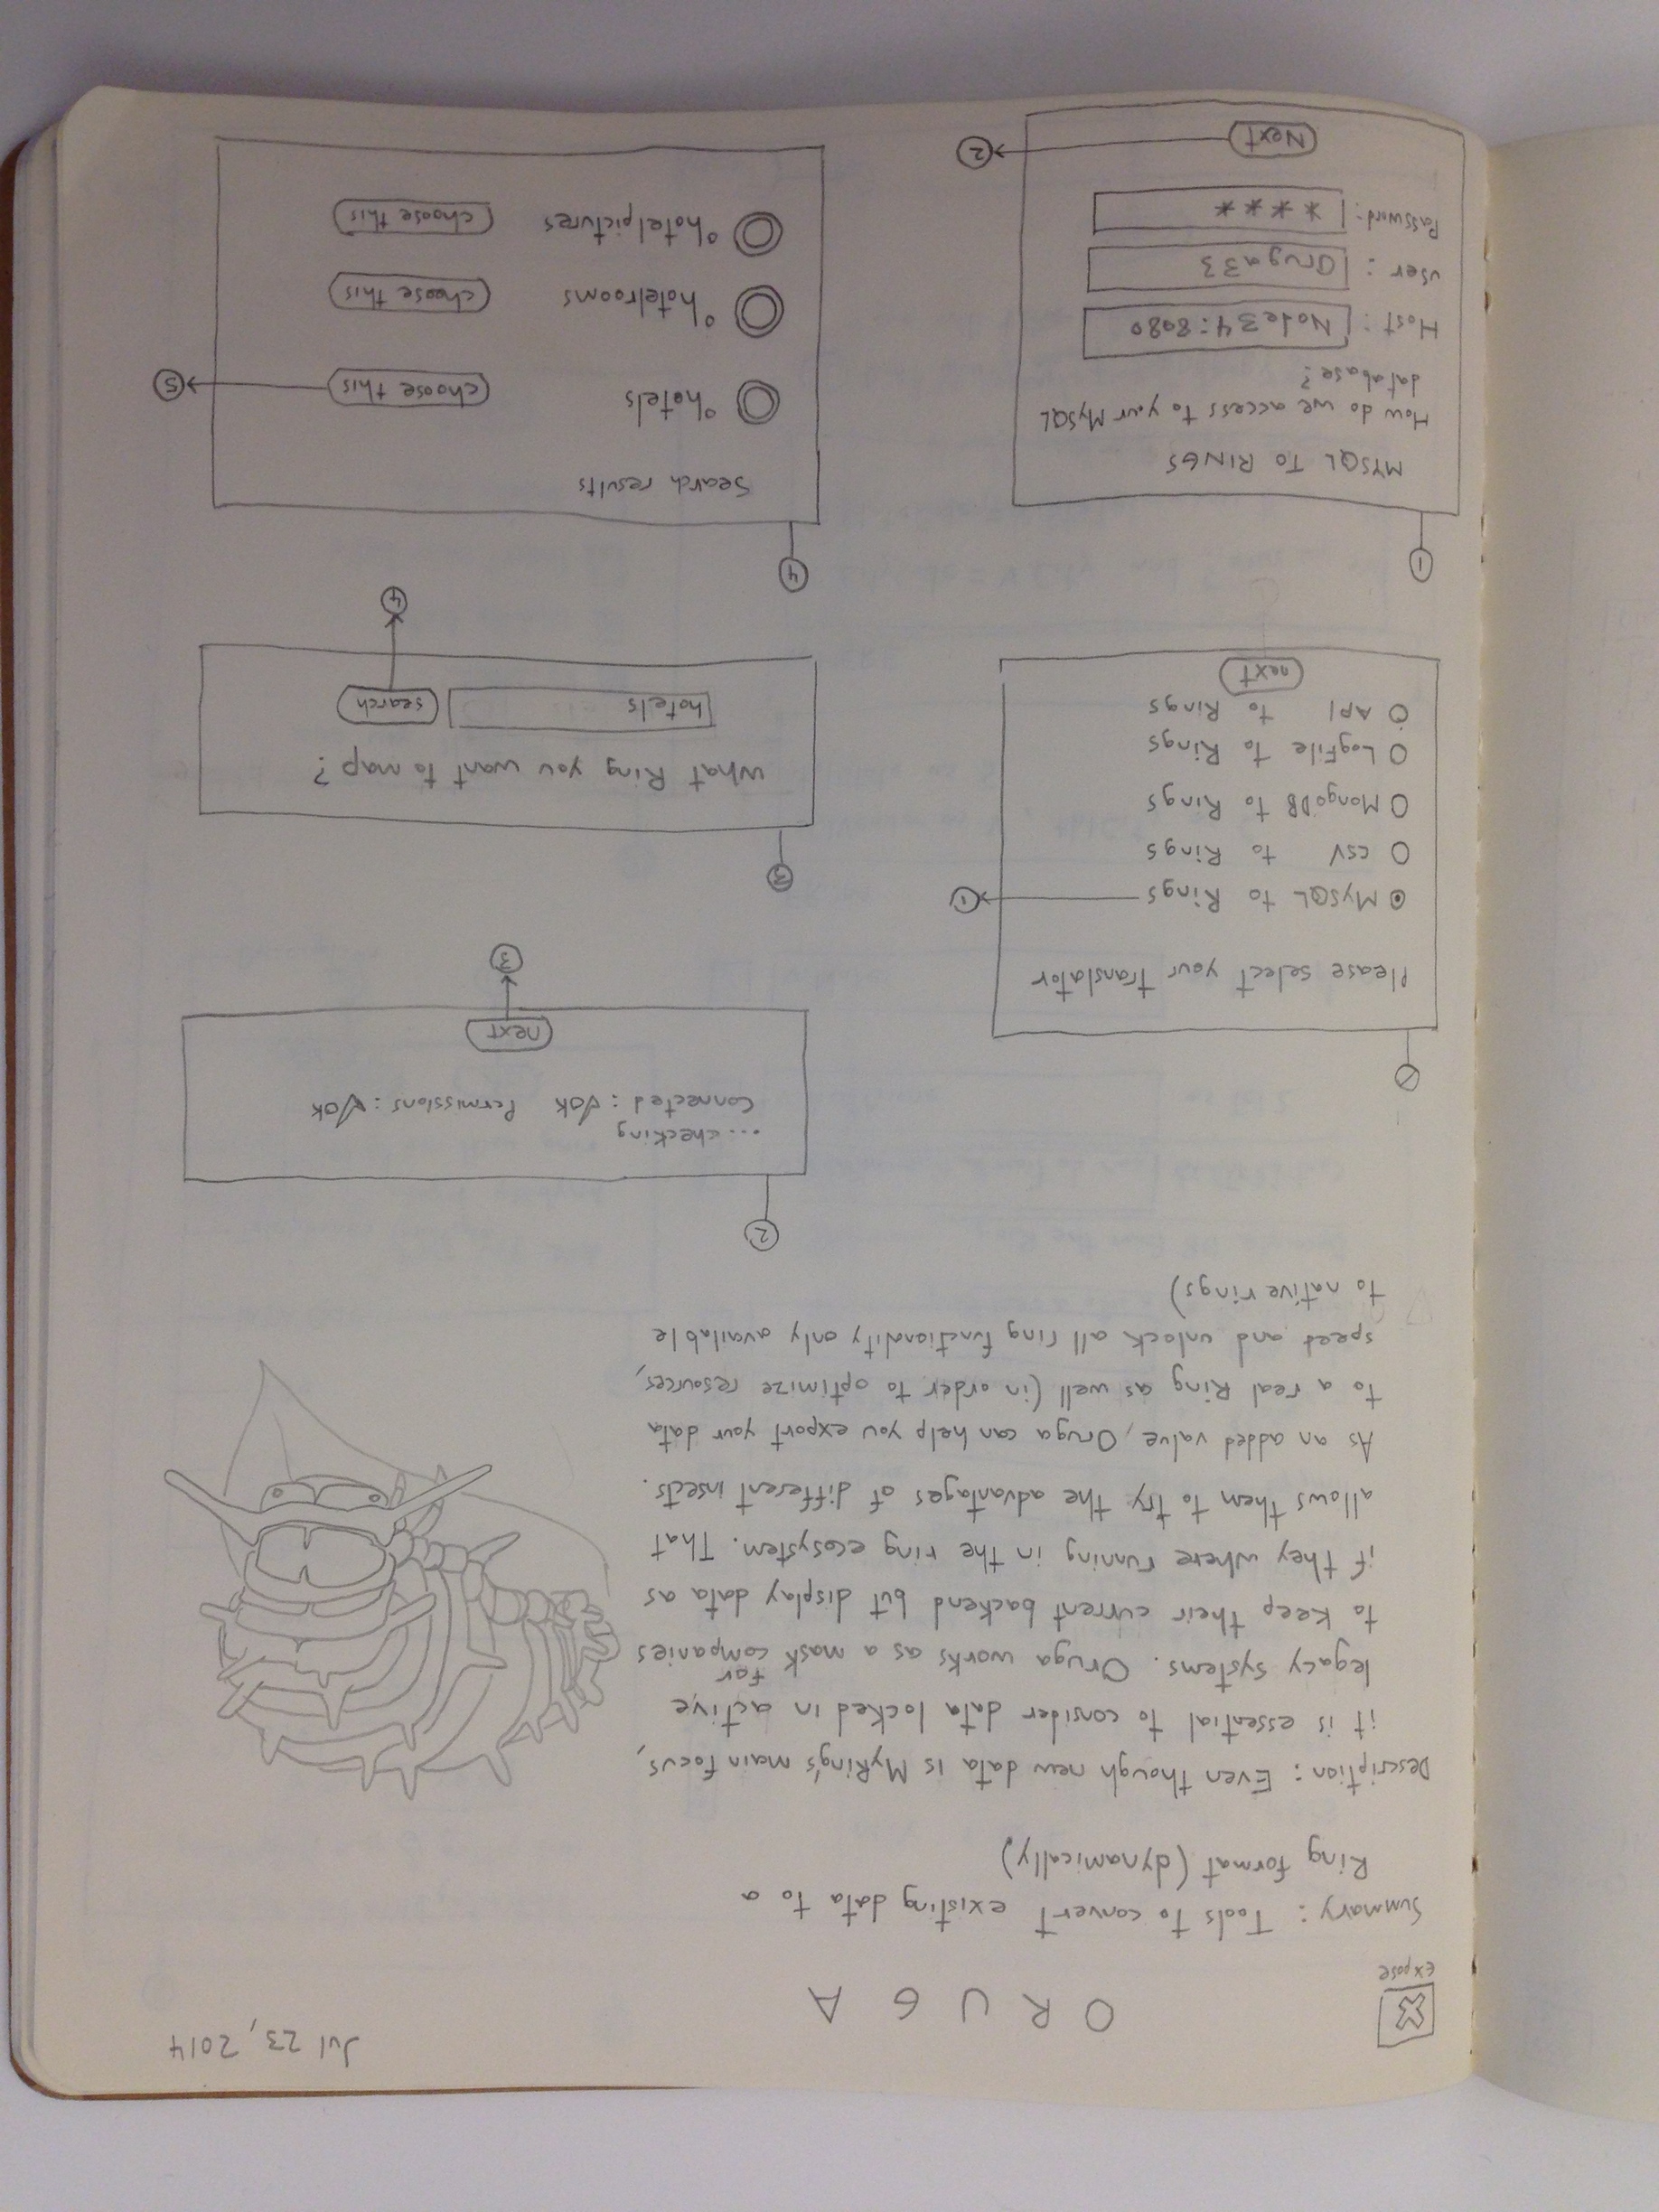 Jul 23, 2014
expose
O R U G A
Summary: Tools to convert existing data to a
Ring format (dynamically)
Description: Even though new data is MyRing's main focus,
it is essential to consider data locked in active
legacy systems. Oruga works as a mask for companies
to keep their current backend but display data as
if they where running in the ring ecosystem. That
allows them to try the advantages of different insects.
As an added value, Oruga can help you export your data
to a real Ring as well (in order to optimize resources,
speed and unlock all ring functionality only available
to native rings)
0
Please select your translator
MySQL to Rings
1
CSV to Rings
MongoDB to Rings
LogFile to Rings
API to Rings
next
1
MYSQL TO RINGS
How do we access to your MySQL
database?
Host: Node34:8080
user: Oruga33
Password: ****
Next
2
2
...checking
Connected: ok Permissions: ok
next
3
3
What Ring you want to map?
hotels search
4
4
Search results
hotels choose this
5
hotelrooms choose this
hotelpictures choose this